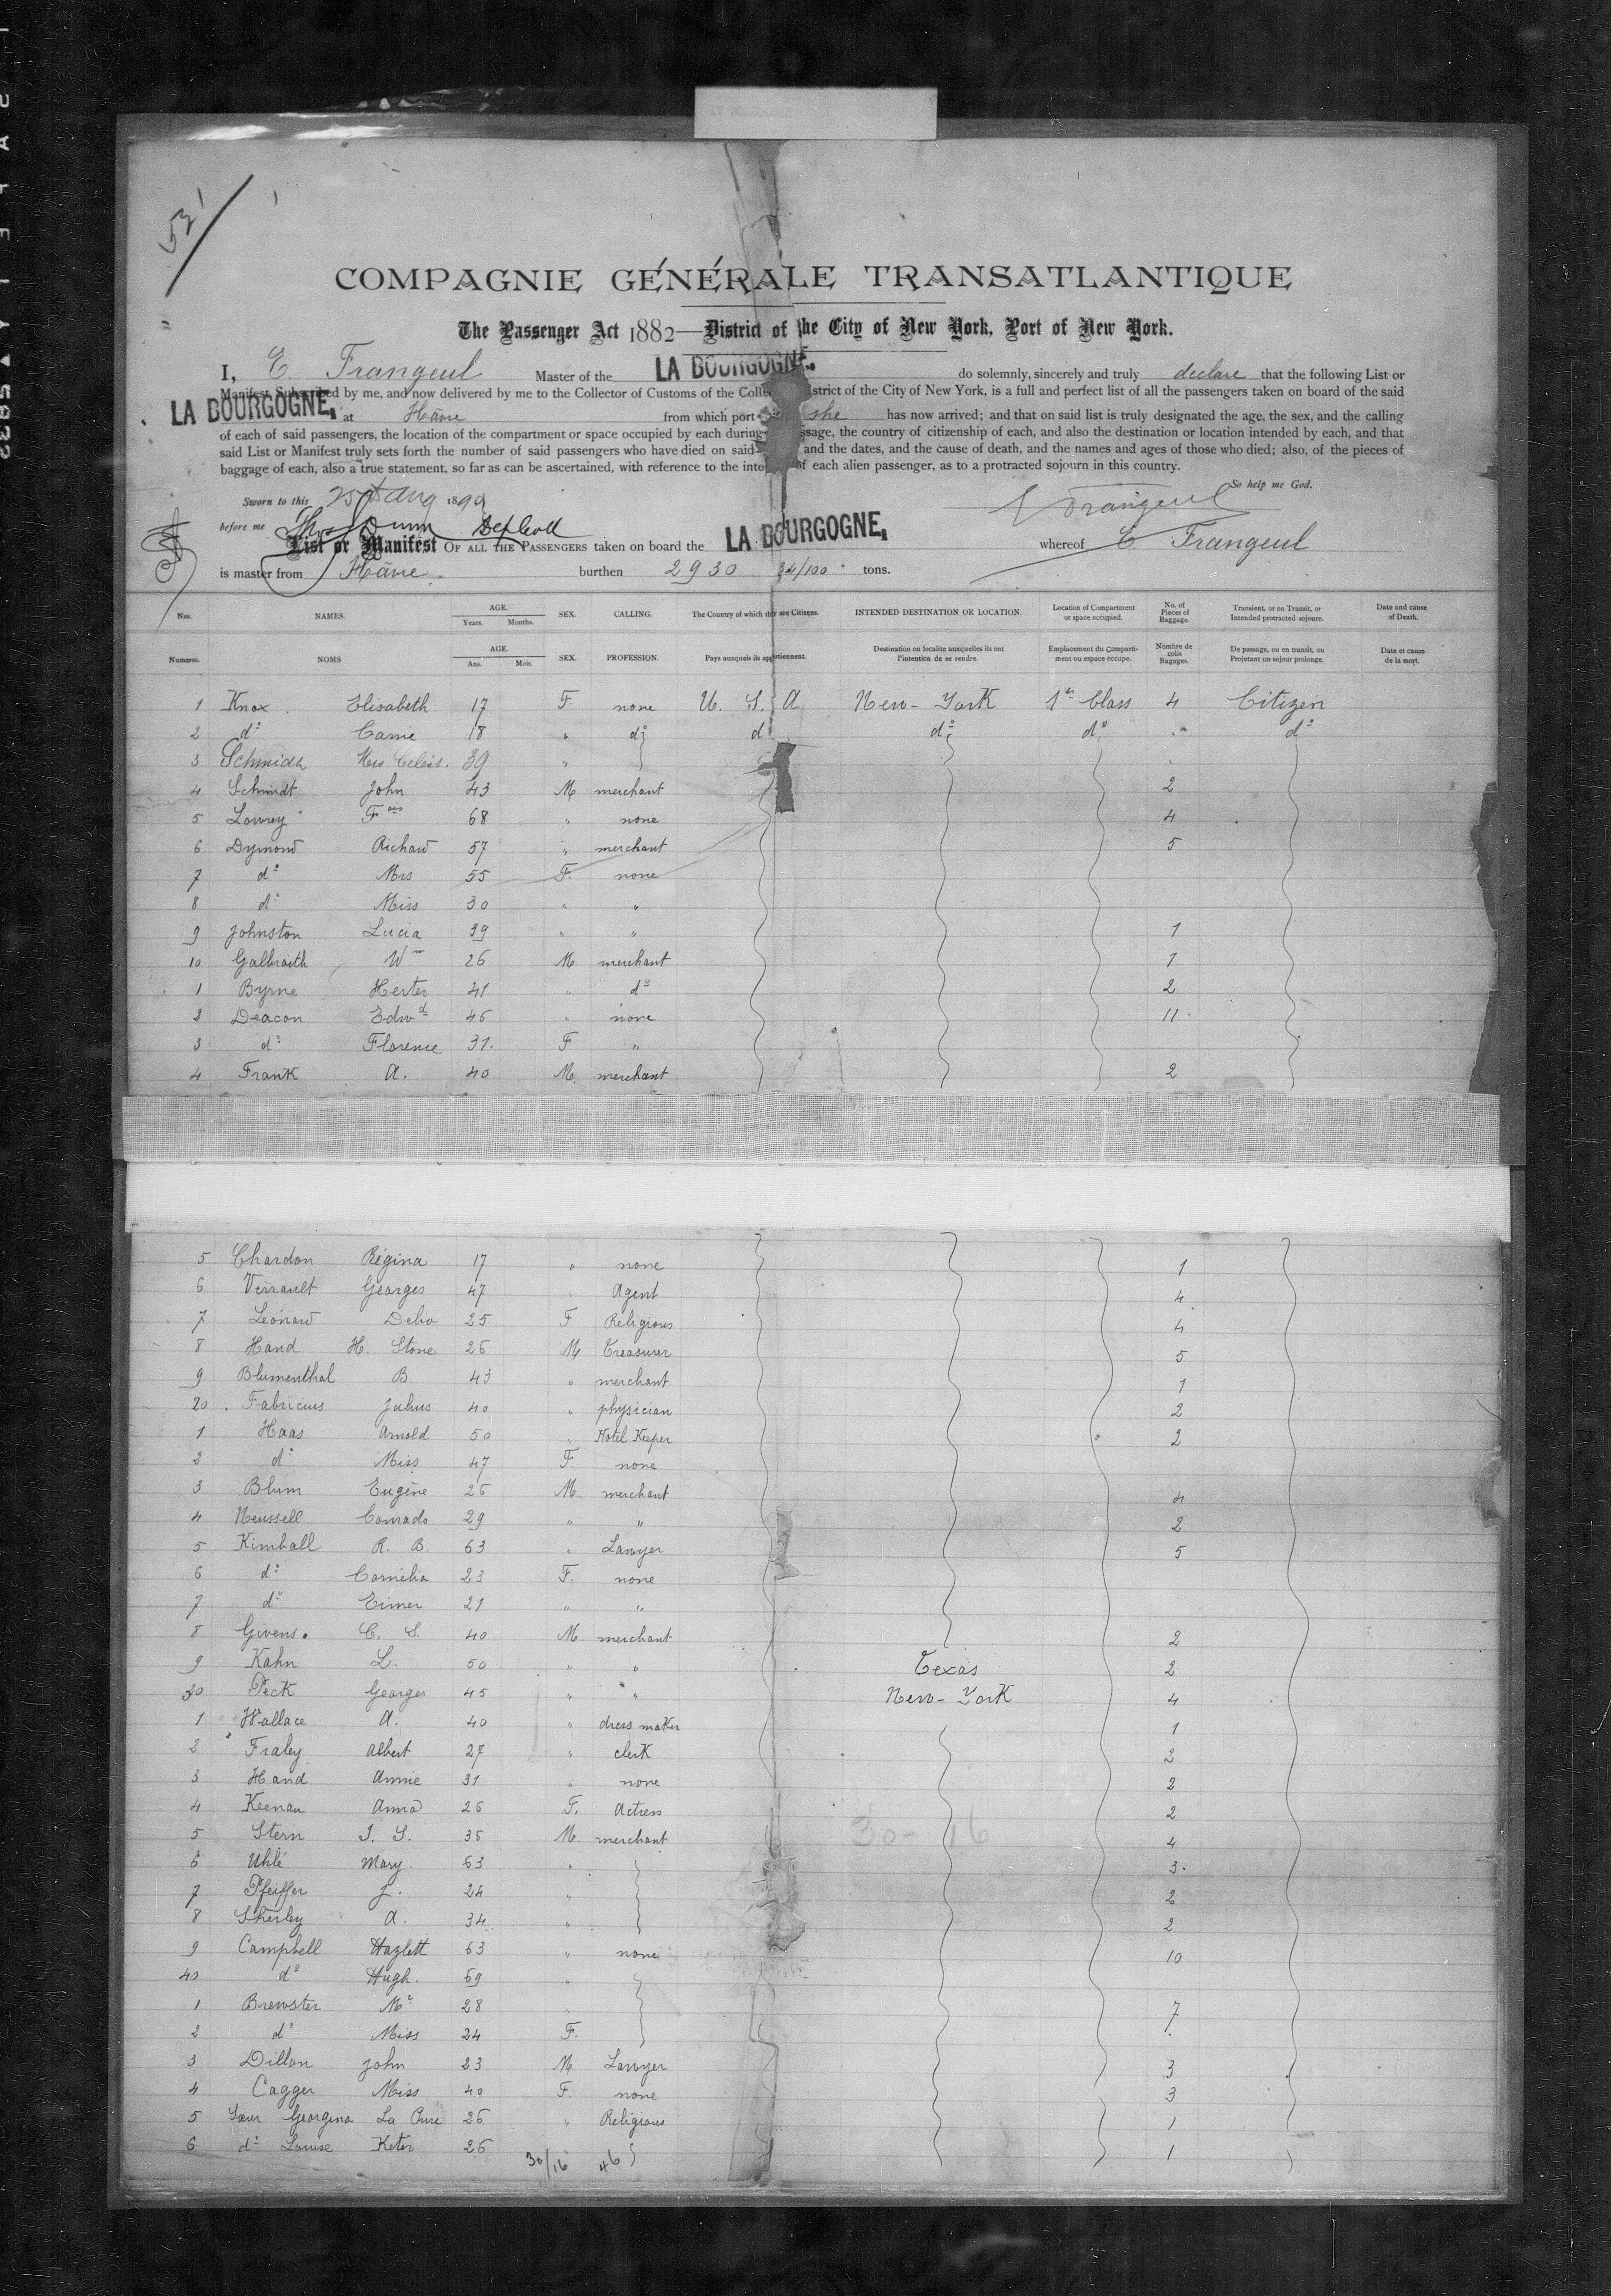 521
COMPAGNIE GÉNÉRALE TRANSATLANTIQUE
The Passenger Act 1882—District of the City of New York, Port of New York.
I, E. Frangeul Master of the LA BOURGOGNE, do solemnly, sincerely and truly declare that the following List or
Manifest, Subscribed by me, and now delivered by me to the Collector of Customs of the Collec strict of the City of New York, is a full and perfect list of all the passengers taken on board of the said
LA BOURGOGNE, at Hâvre from which port she has now arrived; and that on said list is truly designated the age, the sex, and the calling
of each of said passengers, the location of the compartment or space occupied by each during ssage, the country of citizenship of each, and also the destination or location intended by each, and that
said List or Manifest truly sets forth the number of said passengers who have died on said and the dates, and the cause of death, and the names and ages of those who died; also, of the pieces of
baggage of each, also a true statement, so far as can be ascertained, with reference to the inte of each alien passenger, as to a protracted sojourn in this country.
So help me God.
Sworn to this 25th Aug 1890 Frangeul
before me Thos Dunn Dep Coll
List or Manifest OF ALL THE PASSENGERS taken on board the LA BOURGOGNE, whereof E. Frangeul
is master from Hâvre burthen 2930 34/100 tons.
Nos. NAMES. AGE. Years. Months. SEX. CALLING. The Country of which they are Citizens. INTENDED DESTINATION OR LOCATION. Location of Compartment or space occupied. No. of Pieces of Baggage. Transient, or on Transit, or Intended protracted sojourn. Date and cause of Death.
Numeros. NOMS AGE. Ans. Mois. SEX. PROFESSION. Pays auxquels ils appartiennent. Destination ou localite auxquelles ils ont l'intention de se rendre. Emplacement du Comparti-ment ou espace occupe. Nombre de colis Bagages. De passage, ou en transit, ou Projetant un sejour prolonge. Date et cause de la mort.
1 Knox Elisabeth 17 F. none U. S. A New-York 1re Class 4 Citizen
2 do Carrie 18 " do do do do " do
3 Schmidt Mrs 39 "
4 Schmidt John 43 M merchant 2
5 Lowrey Fcis 68 " none 4
6 Dymond Richard 57 " merchant 5
7 do Mrs 55 F. none
8 do Miss 30 " "
9 Johnston Lucia 39 " " 1
10 Galbraith Wm 26 M merchant 1
1 Byrne Herter 41 " do 2
2 Deacon Edwd 46 " none 11
3 do Florence 31. F "
4 Frank A. 40 M. merchant 2
5 Chardon Régina 17 " none 1
6 Verrault Georges 47 " Agent 4
7 Léonard Delia 25 F Religious 4
8 Hand H. Stone 26 M Treasurer 5
9 Blumenthal B 43 " merchant 1
20 Fabricius Julius 40 " physician 2
1 Haas Arnold 50 " Hotel Keeper 2
2 do Miss 47 F. none
3 Blum Eugène 25 M. merchant 4
4 Neussell Conrado 29 " " 2
5 Kimball R. B. 63 " Lawyer 5
6 do Cornélia 23 F. none
7 do Eimer 21 " "
8 Givens. C. S. 40 M. merchant 2
9 Kahn L. 50 " " Texas 2
30 Peck Georges 45 " " New-York 4
1 Wallace A. 40 " dress maker 1
2 Fraley Albert 27 " clerk 2
3 Hand Annie 31 " none 2
4 Keenan Anna 26 F. Actress 2
5 Stern I. S. 35 M. merchant 30-16 4
6 Uhlé Mary. 63 " 3
7 Pfeiffer J. 24 " 2
8 Sherley A. 34 " 2
9 Campbell Hazlett 63 " none 10
40 do Hugh. 69 "
1 Brewster Mr 28 " 7
2 do Miss 24 F.
3 Dillon John 23 M Lawyer 3
4 Cagger Miss 40 F. none 3
5 Sœur Georgina La Cure 26 " Religious 1
6 do Louise Keter 26 1
30/16 46